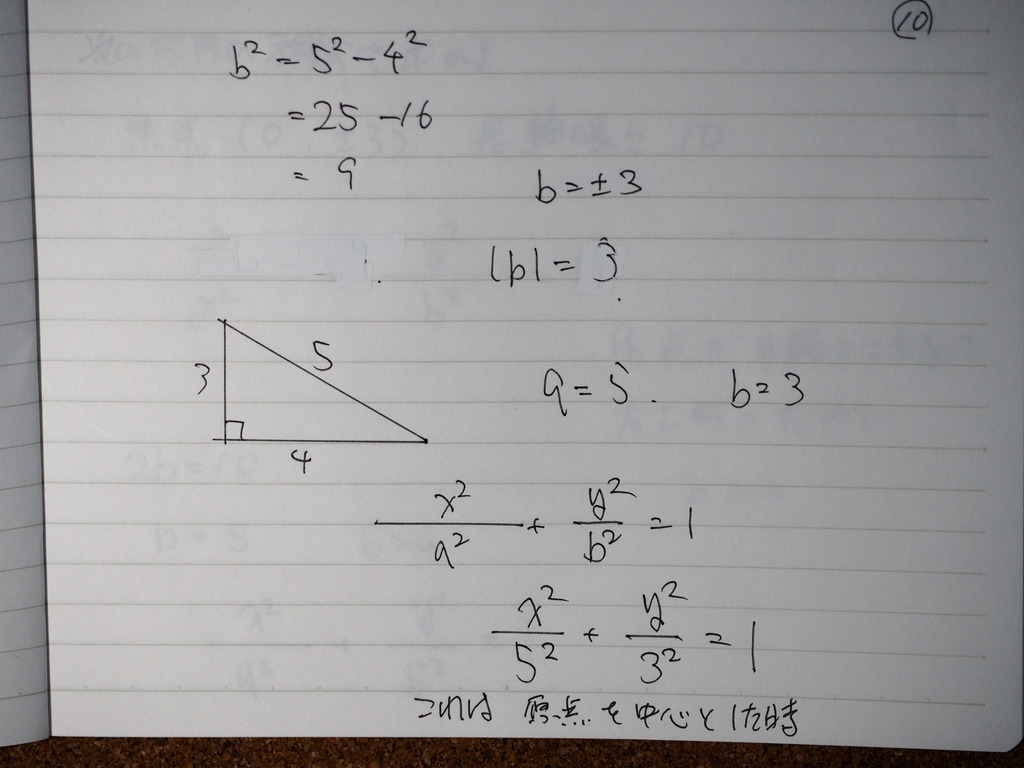 ⑩
b² = 5² − 4²
= 25 − 16
= 9
b = ± 3
|b| = 3
3
5
4
a = 5. b = 3
x²/a² + y²/b² = 1
x²/5² + y²/3² = 1
これは 原点を中心とした時